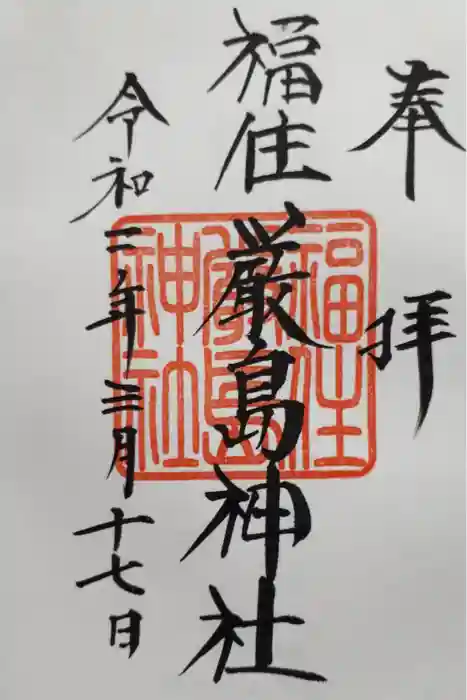 奉拝
福住厳島神社
令和二年三月十七日
福住
嚴島
神社